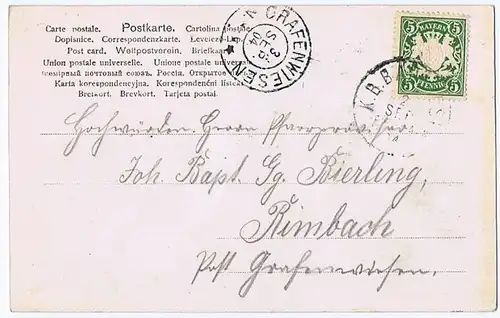 Carte postale. Postkarte. Cartolina postale.
Dopisnice. Correspondenzkarte. Levelező-Lap.
Post card. Weltpostverein. Briefkaart.
Union postale universelle. Unione postale universale.
Всемірный почтовый союзъ. Россія. Открытое
Karta korespondencyjna. Korespondenční lístek.
Brefkort. Brevkort. Tarjeta postal.
GRAFENWIESEN
3
SEP
04
BAYERN
5 5
5 PFENNIG 5
K.B.B
2
SEP
Hochwürden Herrn Pfarrprovisor
Joh. Bapt. Gg. Bierling,
Rimbach
Post Grafenwiesen.